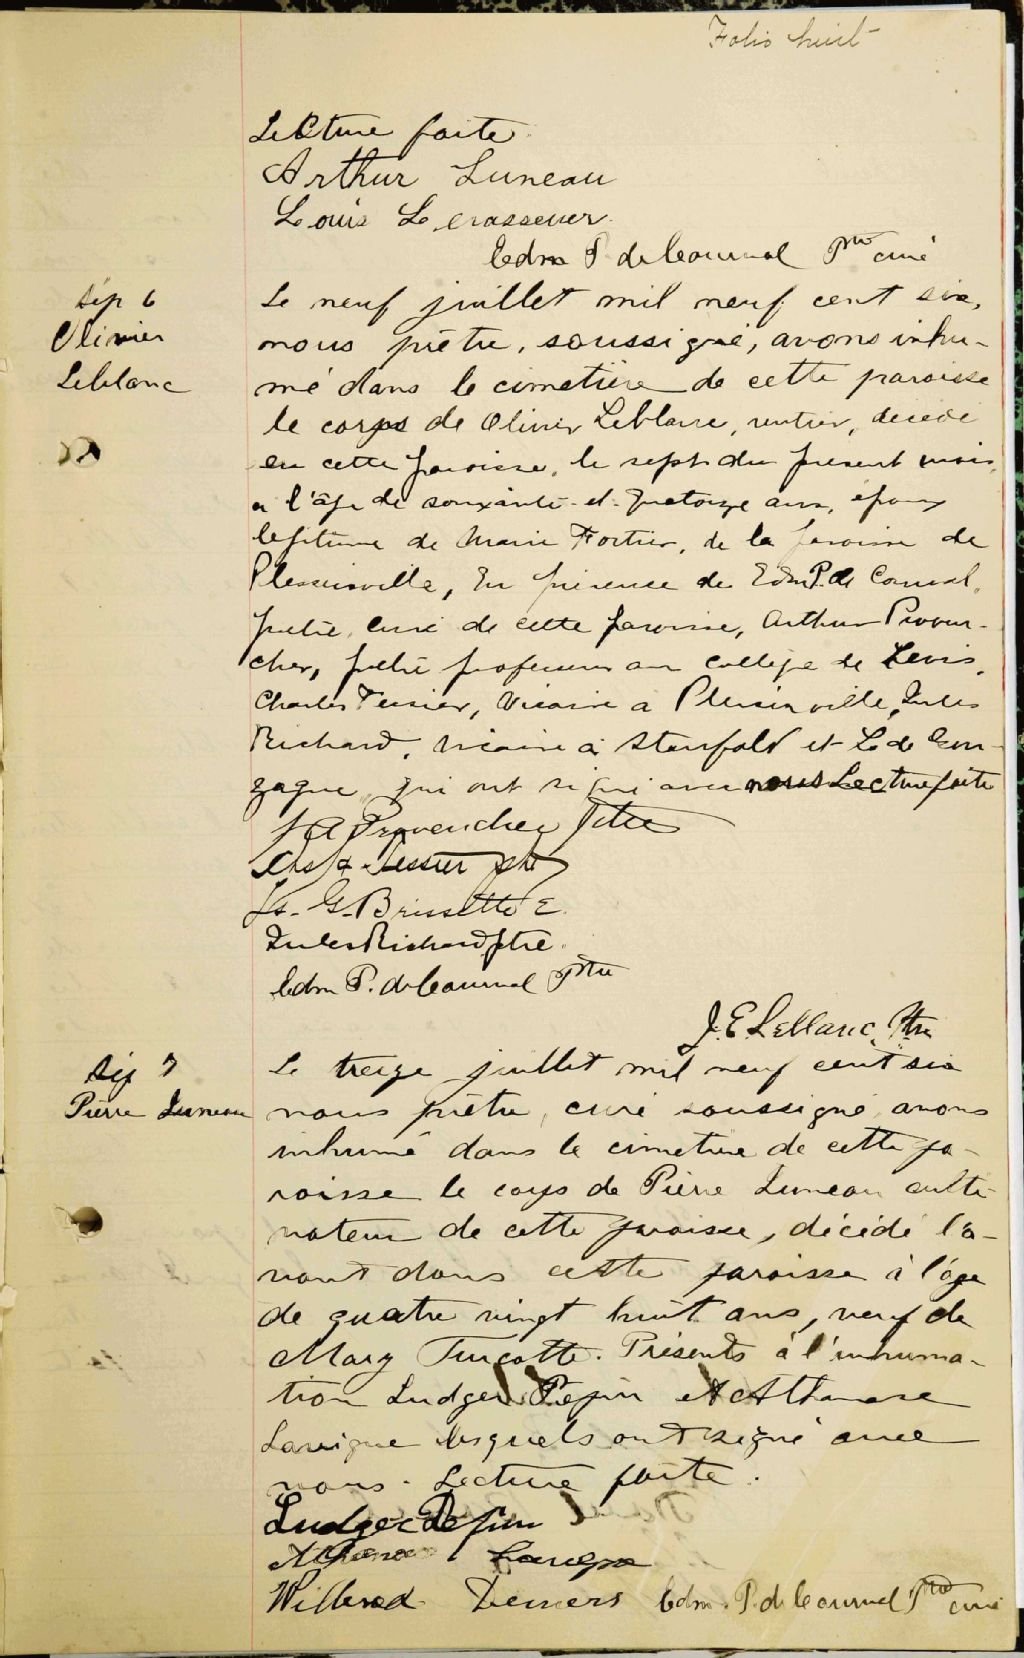 Folio huit
Lecture faite.
Arthur Luneau
Louis Levasseur
Edm P. de Courval Ptre curé
Sép 6
Olivier
Leblanc
Le neuf juillet mil neuf cent six,
nous prêtre, soussigné, avons inhu-
mé dans le cimetière de cette paroisse
le corps de Olivier Leblanc, rentier, décédé
en cette paroisse, le sept du présent mois,
a l'âge de soixante-et-quatorze ans, époux
légitime de Marie Fortier, de la paroisse de
Plessisville, En présence de Edm P. de Courval,
prêtre, curé de cette paroisse, Arthur Proven-
cher, prêtre professeur au collège de Levis,
Charles Tessier, Vicaire à Plessisville, Jules
Richard, vicaire à Stanfold et L. de Gon-
zague qui ont signé avec nous Lecture faite
J A Provencher Ptre
Chs Tessier ptre
Ls. G. Brissette E.
Jules Richard ptre.
Edm P. de Courval Ptre
J. E. Leblanc, Ptre
Sép 7
Pierre Luneau
Le treize juillet mil neuf cent six
nous prêtre, curé soussigné, avons
inhumé dans le cimetière de cette pa-
roisse le corps de Pierre Luneau culti-
vateur de cette paroisse, décédé l'a-
vant dans cette paroisse à l'âge
de quatre vingt huit ans, veuf de
Mary Turcotte. Présents à l'inhuma-
tion Ludger Pepin et Athanase
Lavigne lesquels ont signé avec
nous. Lecture faite.
Ludger Pepin
Athanase Lavigne
Wilbrod Demers Edm. P. de Courval Ptre curé